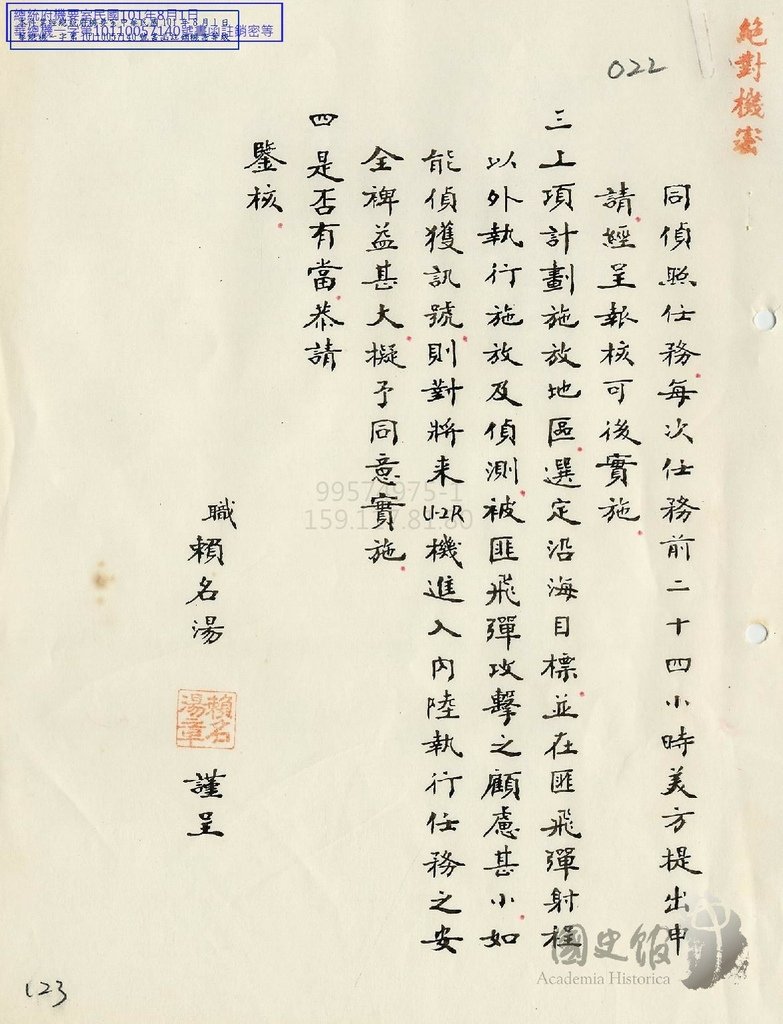 總統府機要室民國101年8月1日
華總機一字第10110057140號書函註銷密等
絕對機密
022
同偵照任務每次任務前二十四小時美方提出申
請經呈報核可後實施
三上項計劃施放地區選定沿海目標並在匪飛彈射程
以外執行施放及偵測被匪飛彈攻擊之顧慮甚小如
能偵獲訊號則對將來U-2R機進入內陸執行任務之安
全裨益甚大擬予同意實施
四是否有當恭請
鑒核
職賴名湯
賴名湯章
謹呈
國史館
Academia Historica
123